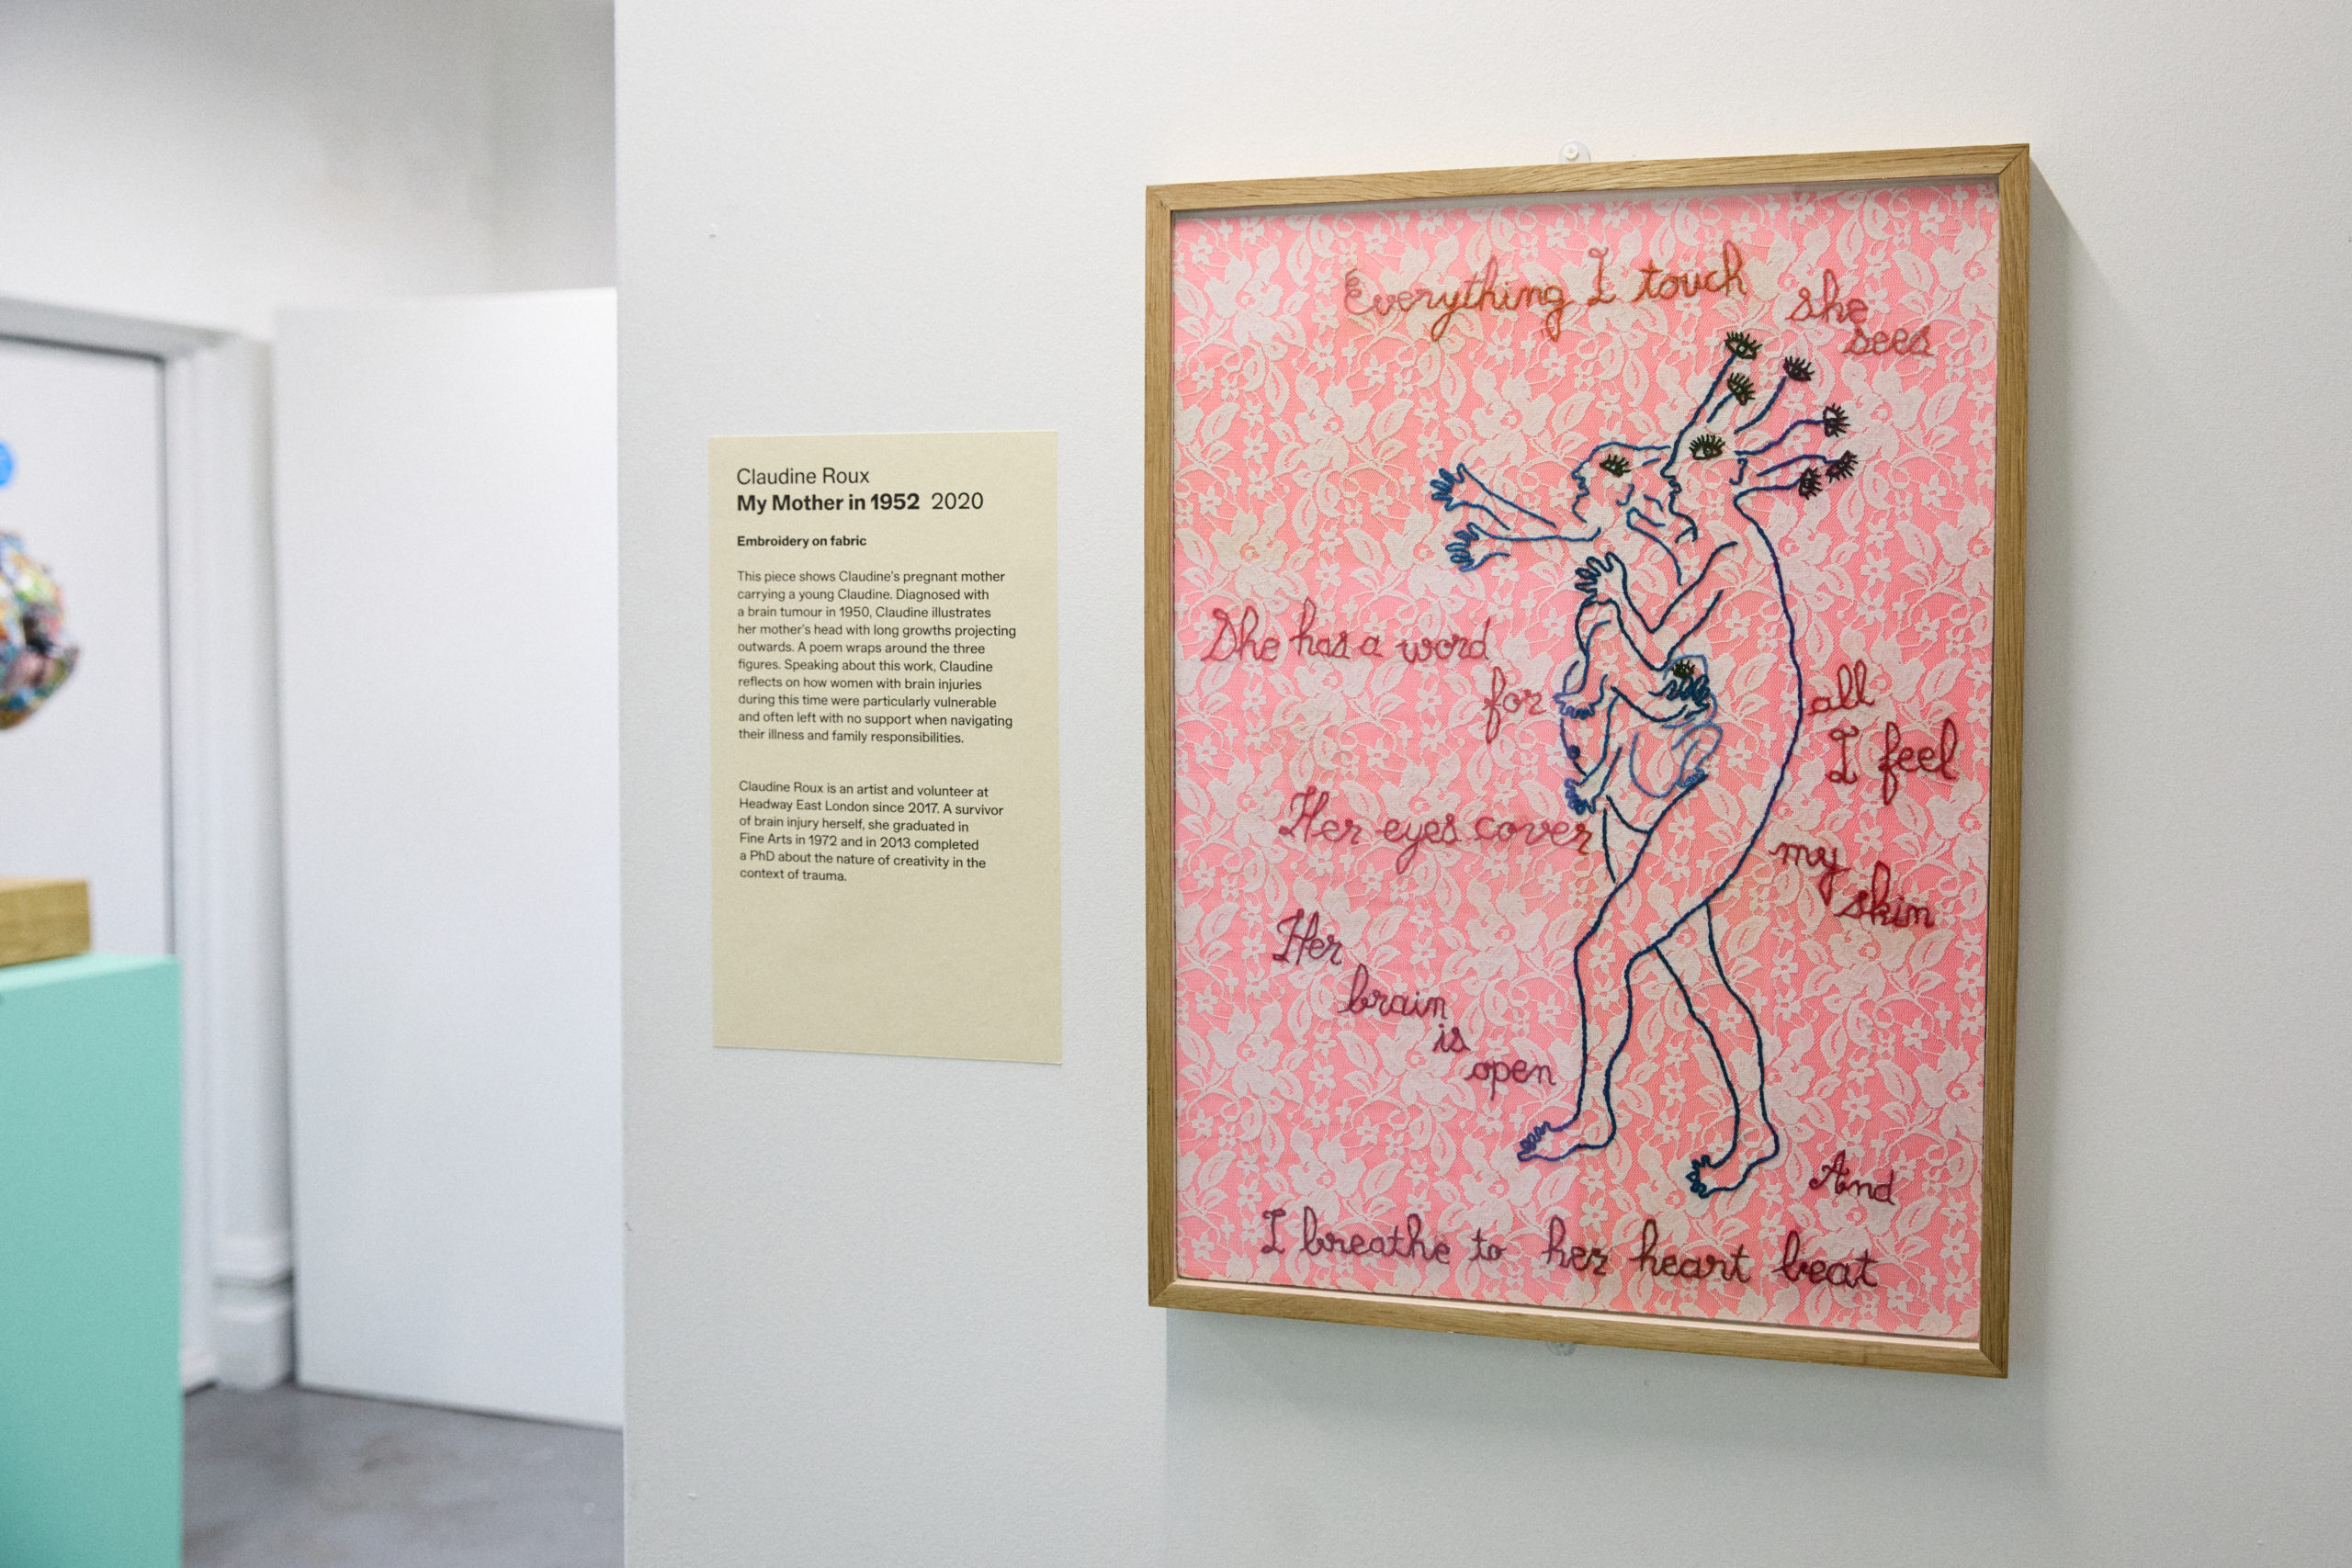 Claudine Roux
My Mother in 1952 2020
Embroidery on fabric
This piece shows Claudine's pregnant mother
carrying a young Claudine. Diagnosed with
a brain tumour in 1950, Claudine illustrates
her mother's head with long growths projecting
outwards. A poem wraps around the three
figures. Speaking about this work, Claudine
reflects on how women with brain injuries
during this time were particularly vulnerable
and often left with no support when navigating
their illness and family responsibilities.
Claudine Roux is an artist and volunteer at
Headway East London since 2017. A survivor
of brain injury herself, she graduated in
Fine Arts in 1972 and in 2013 completed
a PhD about the nature of creativity in the
context of trauma.
Everything I touch
she
sees
She has a word
for
all
I feel
Her eyes cover
my
skin
Her
brain
is
open
And
I breathe to her heart beat